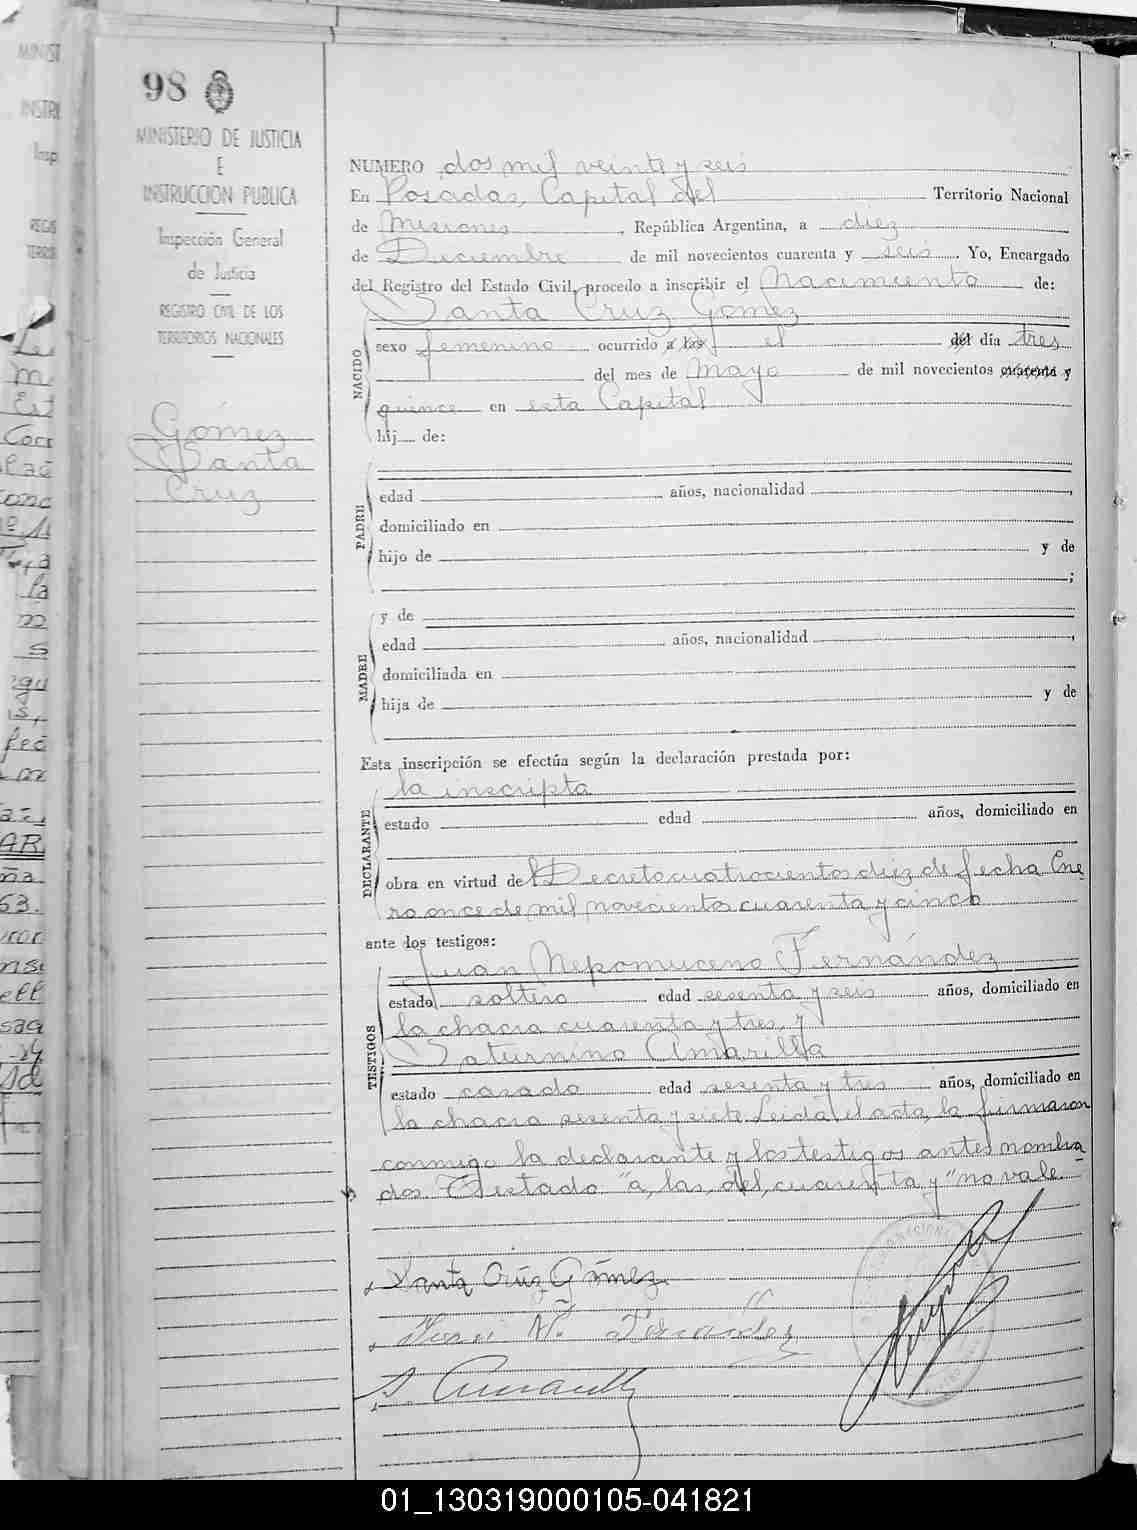 98
MINISTERIO DE JUSTICIA
E
INSTRUCCION PUBLICA
Inspección General
de Justicia
REGISTRO CIVIL DE LOS
TERRITORIOS NACIONALES
Gómez
Santa
Cruz
NUMERO dos mil veinte y seis
En Posadas, Capital del Territorio Nacional
de Misiones, República Argentina, a diez
de Diciembre de mil novecientos cuarenta y seis. Yo, Encargado
del Registro del Estado Civil, procedo a inscribir el Nacimiento de:
Santa Cruz Gómez
NACIDO
sexo femenino ocurrido a las el del día tres
del mes de Mayo de mil novecientos cuarenta y
quince en esta Capital
hij de:
PADRE
edad años, nacionalidad ,
domiciliado en
hijo de y de
;
MADRE
y de
edad años, nacionalidad ,
domiciliada en
hija de y de
Esta inscripción se efectúa según la declaración prestada por:
DECLARANTE
la inscripta
estado edad años, domiciliado en
obra en virtud del Decreto cuatrocientos diez de fecha Ene
ro once de mil novecientos cuarenta y cinco
ante dos testigos:
TESTIGOS
Juan Nepomuceno Fernández
estado soltero edad sesenta y seis años, domiciliado en
la chacra cuarenta y tres, y
Saturnino Amarilla
estado casado edad sesenta y tres años, domiciliado en
la chacra sesenta y siete. Leida el acta, la firmaron
conmigo la declarante y los testigos antes nombra
dos. Testado "a, las, del, cuarenta y" no vale.-
Santa Crúz Gómez
N. Fernandez
S. Amarilla
01_130319000105-041821